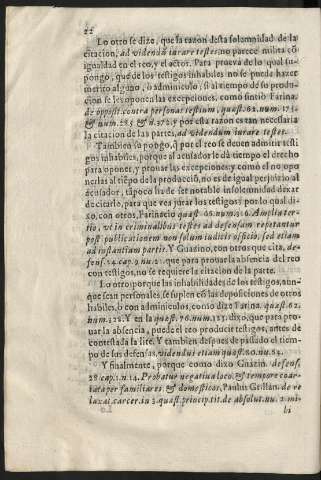 22
Lo otro se dize, que la razon desta solemnidad de la
citacion, ad videndũ iurare testes, no parece milita cõ
igualdad en el reo, y el actor. Para prueva de lo qual su-
pongo, que de los testigos inhabiles no se puede hazer
merito alguno, ò adminiculo, si al tiempo de su produ-
cion se les oponen las excepciones, como sintió Farina.
de opposit. contra personas testium, quæst. 62. num.
& num. 285 & n. 372. y por esta razon es tan necessaria
la citacion de las partes, ad videndum iurare testes.
Tambien supongo, q̃ por el reo se deven admitir testi
gos inhabiles, porque al acusador le dà tiempo el derecho
para oponer, y provar las excepciones: y como el no opo
nerlas al tiẽpo de la producciõ, no es de igual perjuizio al
acusador, tãpoco ha de ser notable insolemnidad dexar
de citarlo, para que vea jurar los testigos por lo qual di-
xo, con otros, Farinacio quæst. 65. num. 216. Amplia ter-
tio, vt in criminalibus testes ad defensam repetantur
post publicationem non solum iudicis officio, sed etiam
ad instantiam partis. Y Guarino, con otros que cita, de-
fens. 24. cap. 9. nu. 21. que para provar la absencia del reo
con testigos, no se requiere la citacion de la parte.
Lo otro porque las inhabilidades de los testigos, aun-
que sean personales, se suplen cõ las deposiciones de otros
habiles, ò con adminiculos, como dixo Farina. quæst. 62.
num. 328. Y en la quæst. 76. num. 127. dixo, que para pro-
uar la absencia, puede el reo producir testigos, antes de
contestada la lite. Y tambien despues de passado el tiem-
po de sus defensas, videndus etiam quæst. 80. nu. 84.
Y finalmente, porque como dixo Guazin. defens.
28. cap. 1. n. 14. Probatur negatiua loco, & tempore coar-
ctata per familiares, & domesticos, Paulus Grillan. de re
laxat. carcer. in 3. quæst. princip. tit. de absolut. nu. 2. mi-
hi